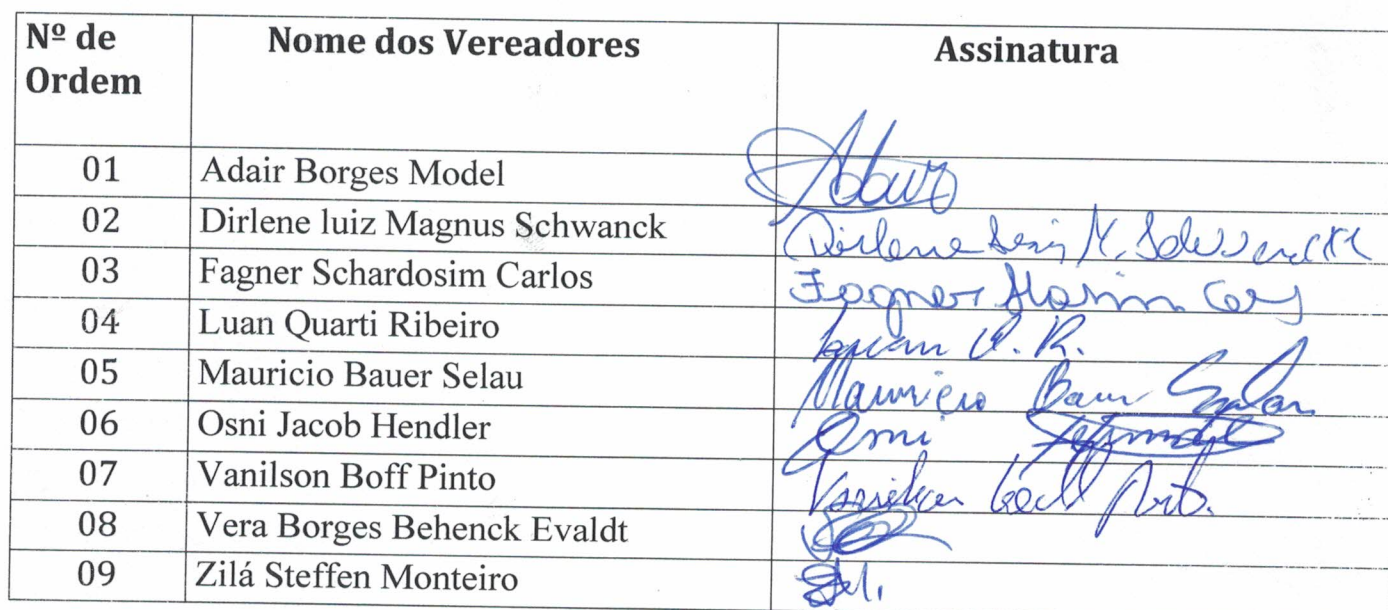 Nº de Ordem Nome dos Vereadores Assinatura
01 Adair Borges Model
02 Dirlene luiz Magnus Schwanck Dirlene
03 Fagner Schardosim Carlos Fagner
04 Luan Quarti Ribeiro Luan Q. R.
05 Mauricio Bauer Selau Mauricio Bauer Selau
06 Osni Jacob Hendler Osni
07 Vanilson Boff Pinto
08 Vera Borges Behenck Evaldt
09 Zilá Steffen Monteiro